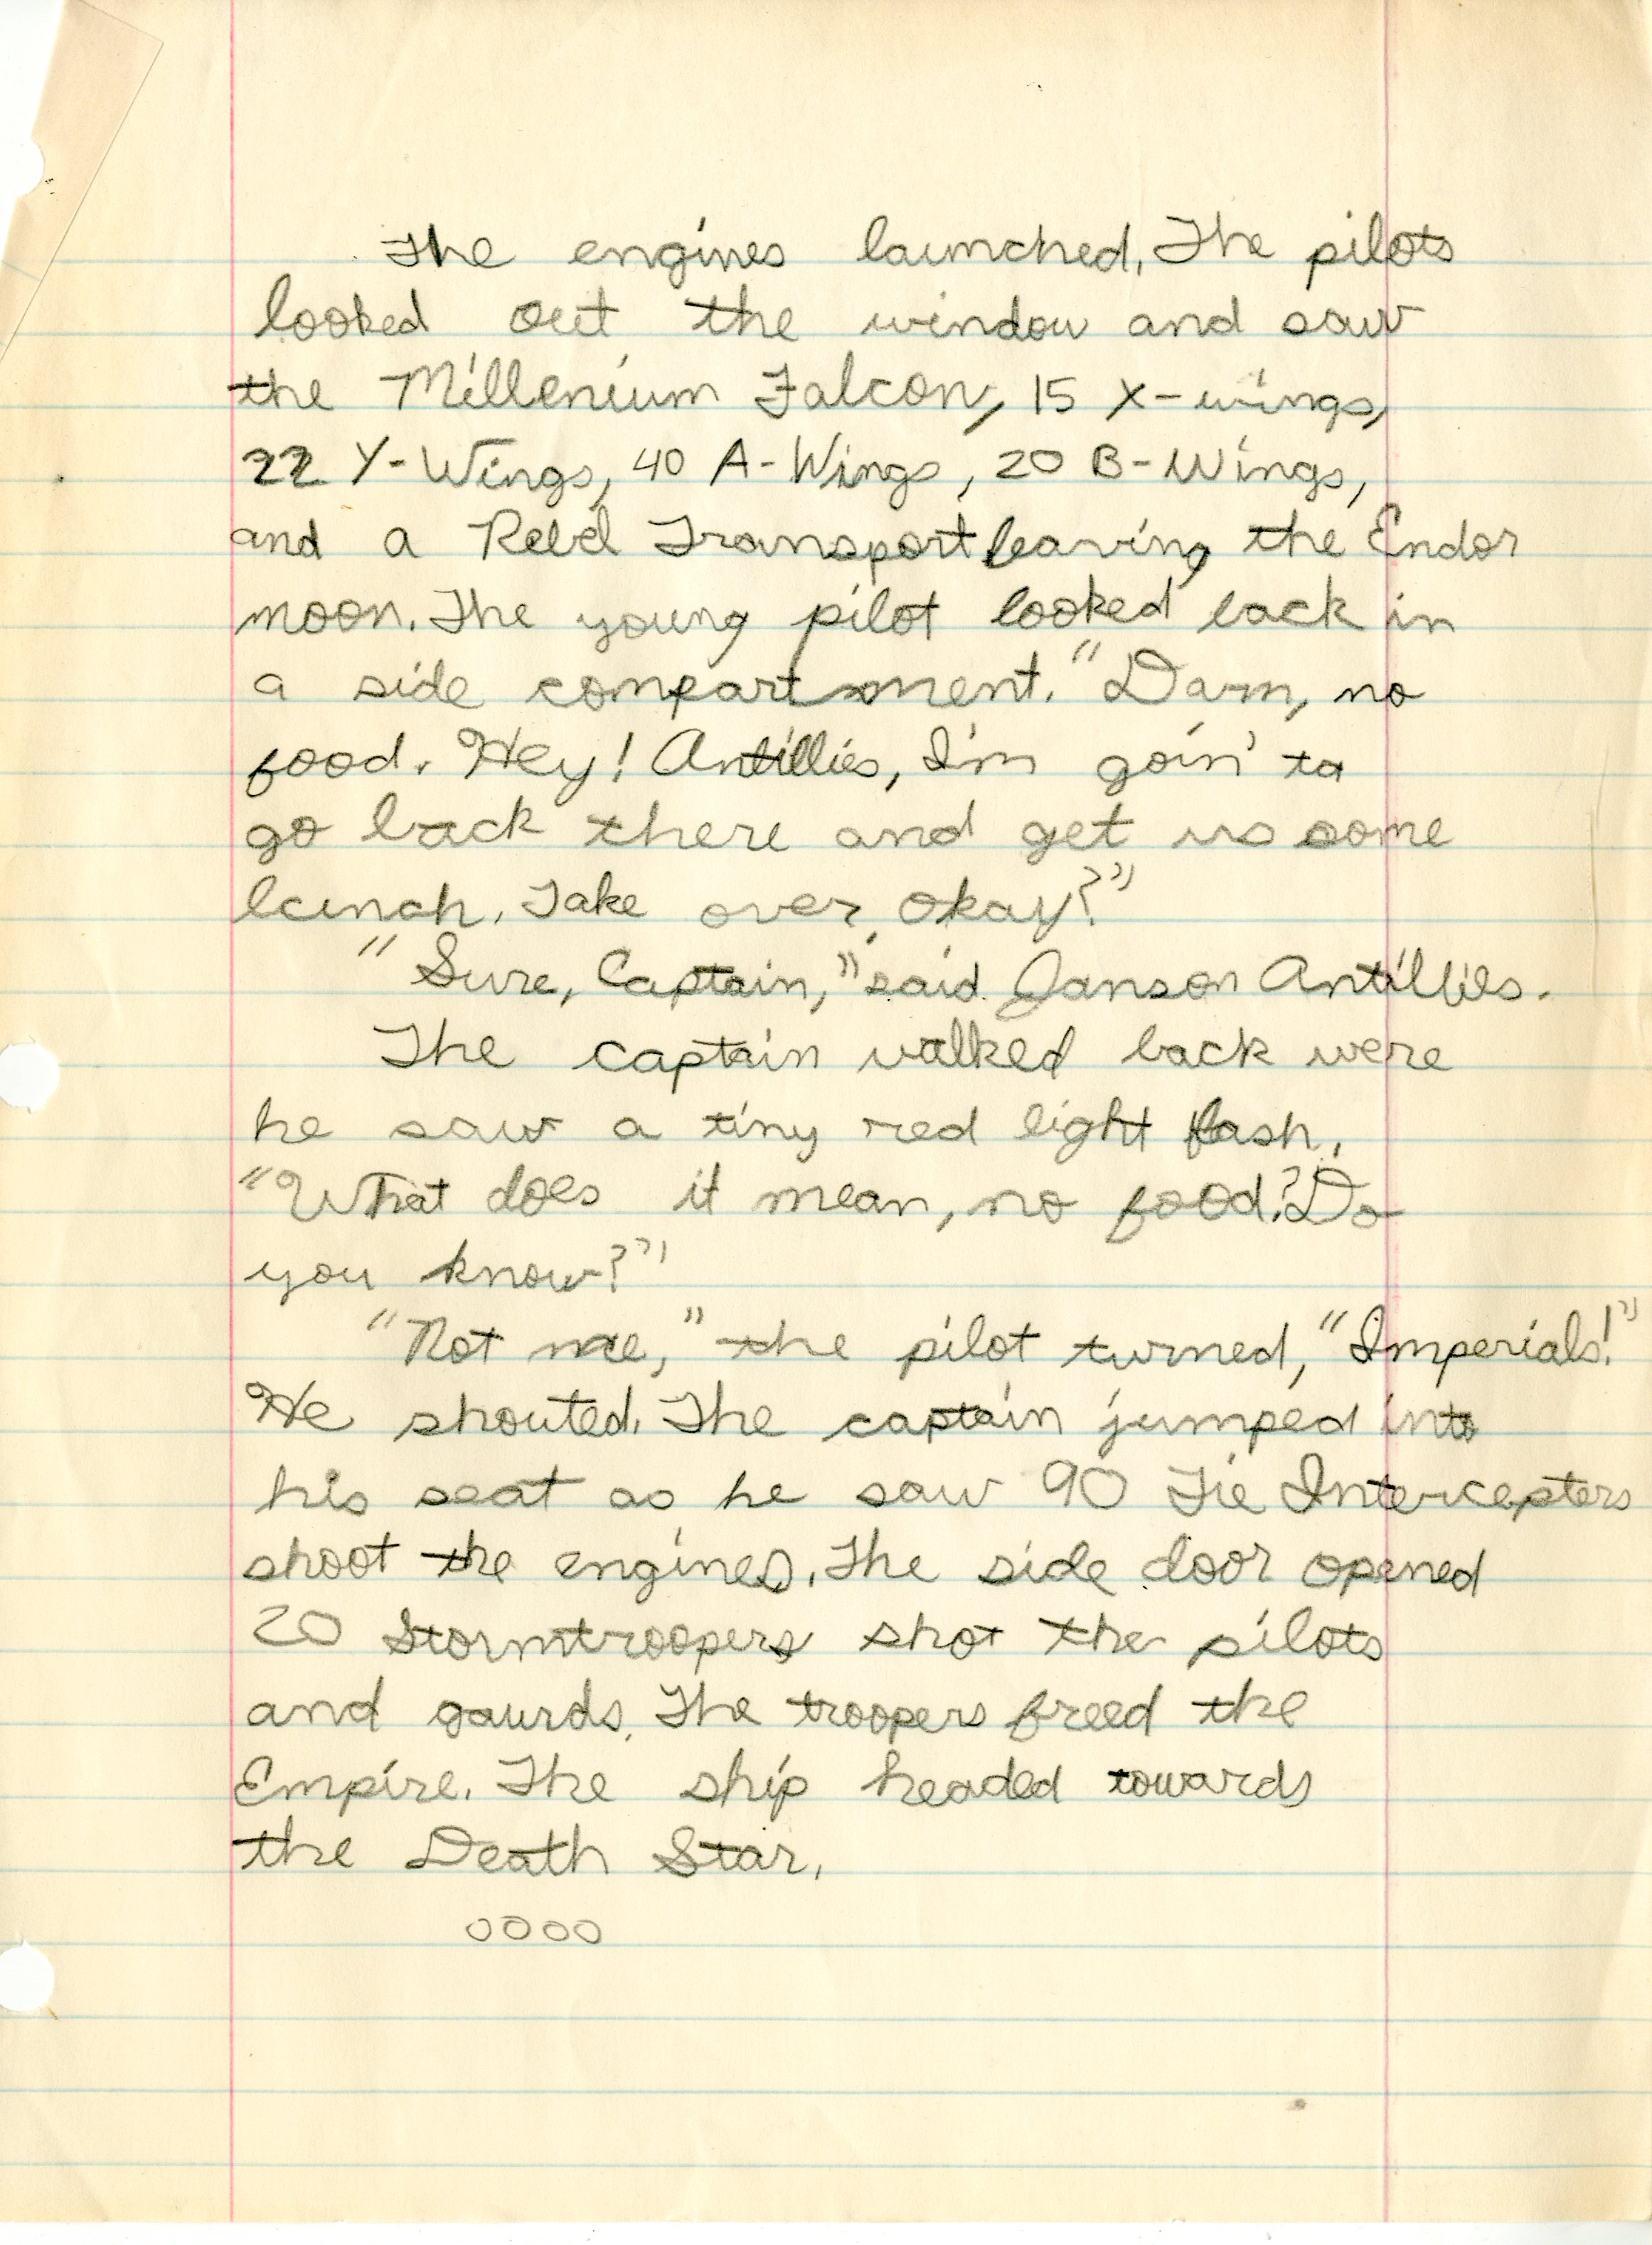 The engines launched. The pilots
looked out the window and saw
the Millenium Falcon, 15 X-wings,
22 Y-Wings, 40 A-Wings, 20 B-Wings,
and a Rebel Transport leaving the Endor
moon. The young pilot looked back in
a side compartment. "Darn, no
food. Hey! Antillies, I'm goin' to
go back there and get us some
lunch. Take over, okay?"
"Sure, Captain," said Janson Antillies.
The captain walked back were
he saw a tiny red light flash.
"What does it mean, no food? Do
you know?"
"Not me," the pilot turned, "Imperials!"
He shouted. The captain jumped into
his seat as he saw 90 Tie Intercepters
shoot the engines. The side door opened
20 Stormtroopers shot the pilots
and gaurds. The troopers freed the
Empire. The ship headed towards
the Death Star.
oooo